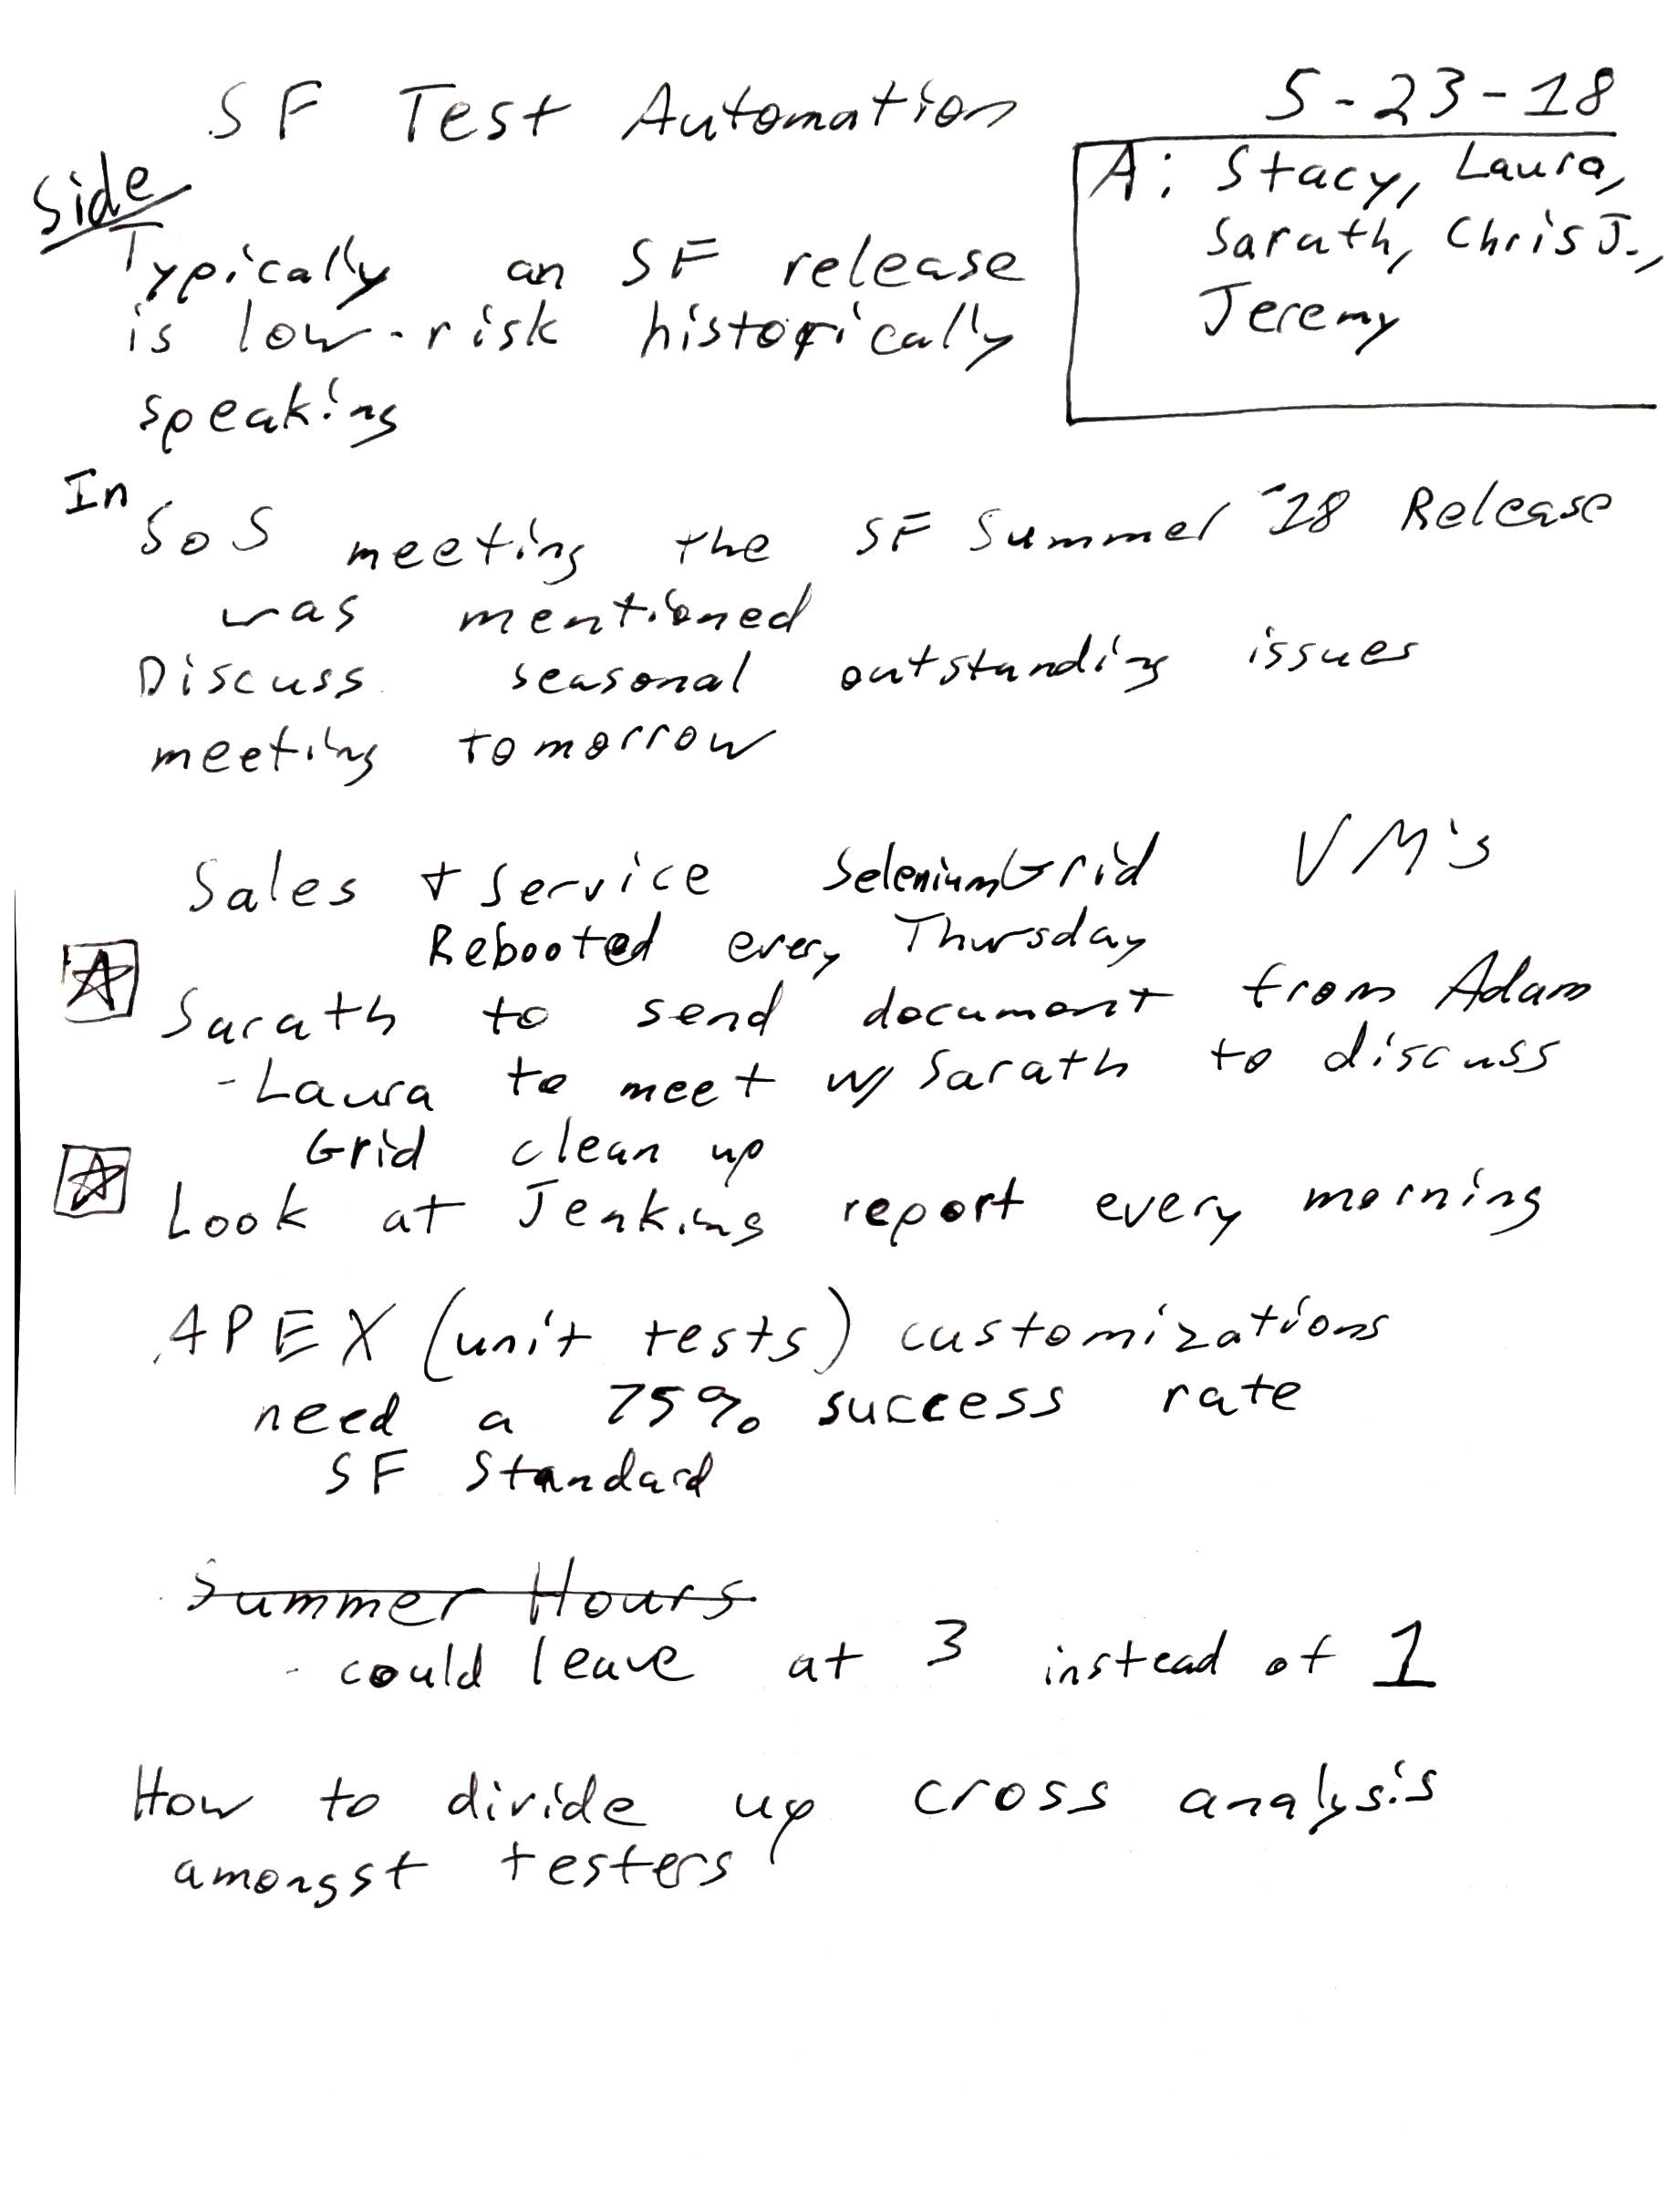 SF Test Automation
5-23-18
A: Stacy, Laura,
Sarath, Chris J.,
Jeremy
Side
Typically an SF release
is low-risk historically
speaking
In
SoS meeting the SF Summer '18 Release
was mentioned
Discuss seasonal outstanding issues
meeting tomorrow
Sales + Service SeleniumGrid VM's
Rebooted every Thursday
Sarath to send document from Adam
- Laura to meet w/ Sarath to discuss
Grid clean up
Look at Jenkins report every morning
APEX (unit tests) customizations
need a 75% success rate
SF Standard
Summer Hours
- could leave at 3 instead of 1
How to divide up cross analysis
amongst testers